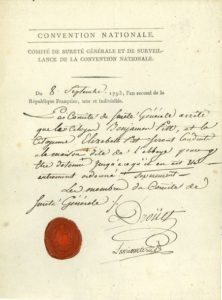 CONVENTION NATIONALE.
COMITÉ DE SURETÉ GÉNÉRALE ET DE SURVEIL-
LANCE DE LA CONVENTION NATIONALE.
Du 8 Septembre 1793, l'an second de la
République Française, une et indivisible.
Le Comité de Sureté Générale arrête
que le Citoyen Benjamin Pitt, et la
Citoyenne Elizabeth Pitt seront conduits
à la maison dite de l'abbaye pour y
être detenus jusqu'à ce qu'il en soit
autrement ordonné
Les membres du Comité de
Sureté Générale
Drouet